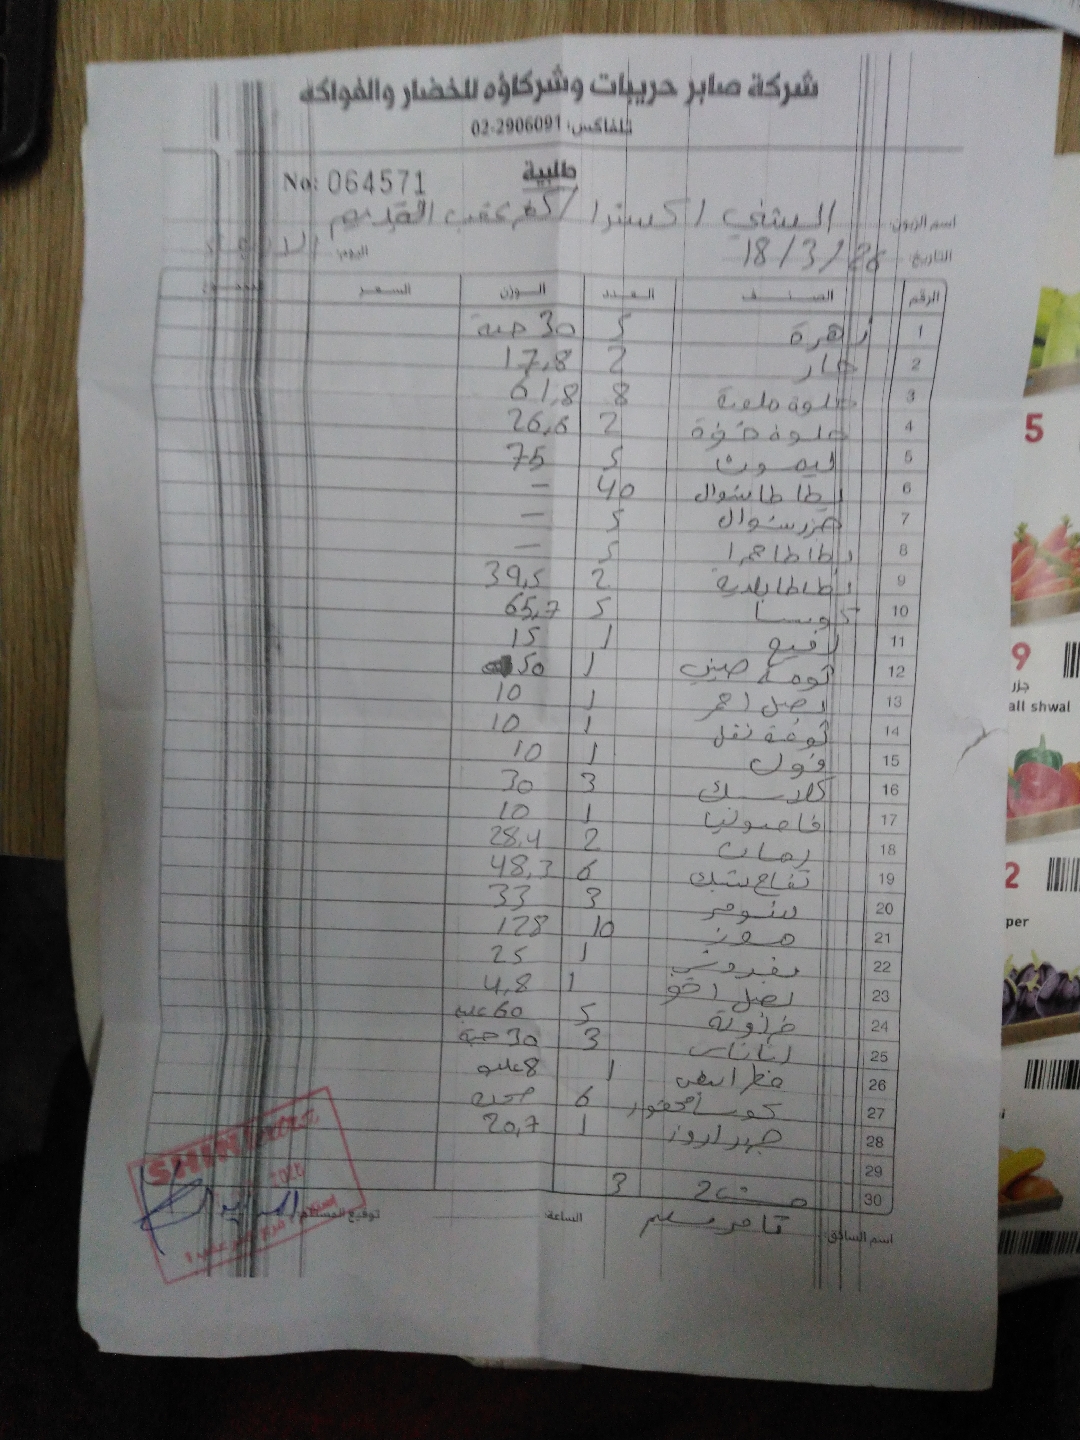 شركة صابر حريبات وشركاؤه للخضار والفواكه
تلفاكس: 02-2906091
طلبية
No: 064571
اسم الزبون: الشني اكسترا / كفر عقب القديم
التاريخ: 18/3/26 اليوم: الاربعاء
الرقم الصنف العدد الوزن السعر
1 زهرة 5 30 حبة
2 خيار 2 17,8
3 حلوة ملعبة 8 61,8
4 حلوة 2 26,6
5 ليمون 5 75
6 بطاطا شوال 40 -
7 جزر شوال 5 -
8 بطاطا حمرا 5 -
9 بطاطا بلدية 2 39,5
10 كوسا 5 65,7
11 رفيع 1 15
12 تومة صيني 1 50
13 بصل احمر 1 10
14 1 10
15 فول 1 10
16 كلاسيك 3 30
17 فاصوليا 1 10
18 رمان 2 28,4
19 تفاح سنك 6 48,3
20 بوملي 3 33
21 موز 10 128
22 1 25
23 بصل اخضر 1 4,8
24 فراولة 5 60 علبة
25 اناناس 3 30 حبة
26 فطر ابيض 1 8 علبة
27 كوسا محفور 6 صحن
28 1 20,7
29
30 3
اسم السائق: تامر سليم الساعة: توقيع المستلم:
SHINI
2026
5
9
جزر
all shwal
2
per